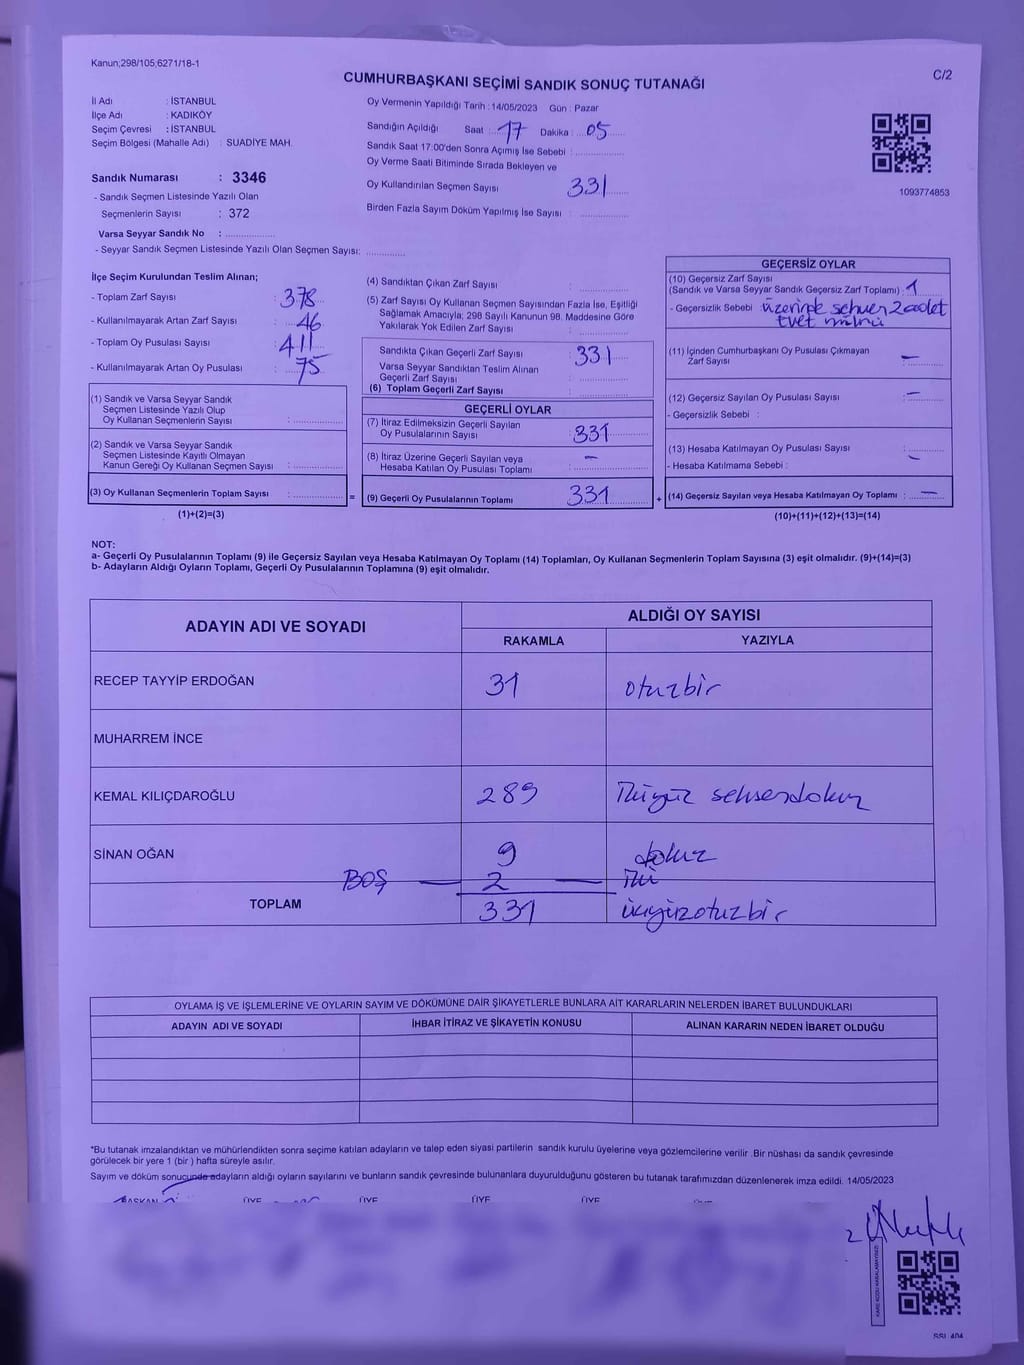 Kanun;298/105;6271/18-1
C/2
CUMHURBAŞKANI SEÇİMİ SANDIK SONUÇ TUTANAĞI
İl Adı : İSTANBUL
İlçe Adı : KADIKÖY
Seçim Çevresi : İSTANBUL
Seçim Bölgesi (Mahalle Adı) : SUADİYE MAH.
Sandık Numarası : 3346
- Sandık Seçmen Listesinde Yazılı Olan
Seçmenlerin Sayısı : 372
Varsa Seyyar Sandık No : ..............
- Seyyar Sandık Seçmen Listesinde Yazılı Olan Seçmen Sayısı: ............
Oy Vermenin Yapıldığı Tarih : 14/05/2023 Gün : Pazar
Sandığın Açıldığı Saat 17 Dakika : 05
Sandık Saat 17:00'den Sonra Açımış İse Sebebi : ..............
Oy Verme Saati Bitiminde Sırada Bekleyen ve
Oy Kullandırılan Seçmen Sayısı 331
Birden Fazla Sayım Döküm Yapılmış İse Sayısı : ..............
1093774853
İlçe Seçim Kurulundan Teslim Alınan;
- Toplam Zarf Sayısı : 378
- Kullanılmayarak Artan Zarf Sayısı : 46
- Toplam Oy Pusulası Sayısı : 411
- Kullanılmayarak Artan Oy Pusulası : 75
(1) Sandık ve Varsa Seyyar Sandık
Seçmen Listesinde Yazılı Olup
Oy Kullanan Seçmenlerin Sayısı : ..............
(2) Sandık ve Varsa Seyyar Sandık
Seçmen Listesinde Kayıtlı Olmayan
Kanun Gereği Oy Kullanan Seçmen Sayısı : ..............
(3) Oy Kullanan Seçmenlerin Toplam Sayısı : .............. =
(1)+(2)=(3)
(4) Sandıktan Çıkan Zarf Sayısı : ..............
(5) Zarf Sayısı Oy Kullanan Seçmen Sayısından Fazla İse, Eşitliği
Sağlamak Amacıyla; 298 Sayılı Kanunun 98. Maddesine Göre
Yakılarak Yok Edilen Zarf Sayısı : ..............
Sandıkta Çıkan Geçerli Zarf Sayısı : 331
Varsa Seyyar Sandıktan Teslim Alınan
Geçerli Zarf Sayısı : ..............
(6) Toplam Geçerli Zarf Sayısı : ..............
GEÇERLİ OYLAR
(7) İtiraz Edilmeksizin Geçerli Sayılan
Oy Pusulalarının Sayısı : 331
(8) İtiraz Üzerine Geçerli Sayılan veya
Hesaba Katılan Oy Pusulası Toplamı : —
(9) Geçerli Oy Pusulalarının Toplamı 331 +
GEÇERSİZ OYLAR
(10) Geçersiz Zarf Sayısı
(Sandık ve Varsa Seyyar Sandık Geçersiz Zarf Toplamı) : 1
- Geçersizlik Sebebi : üzerinde sehven 2 adet
Evet mührü
(11) İçinden Cumhurbaşkanı Oy Pusulası Çıkmayan
Zarf Sayısı : —
(12) Geçersiz Sayılan Oy Pusulası Sayısı : —
- Geçersizlik Sebebi :
(13) Hesaba Katılmayan Oy Pusulası Sayısı : —
- Hesaba Katılmama Sebebi :
(14) Geçersiz Sayılan veya Hesaba Katılmayan Oy Toplamı : —
(10)+(11)+(12)+(13)=(14)
NOT:
a- Geçerli Oy Pusulalarının Toplamı (9) ile Geçersiz Sayılan veya Hesaba Katılmayan Oy Toplamı (14) Toplamları, Oy Kullanan Seçmenlerin Toplam Sayısına (3) eşit olmalıdır. (9)+(14)=(3)
b- Adayların Aldığı Oyların Toplamı, Geçerli Oy Pusulalarının Toplamına (9) eşit olmalıdır.
ADAYIN ADI VE SOYADI
ALDIĞI OY SAYISI
RAKAMLA YAZIYLA
RECEP TAYYİP ERDOĞAN 31 otuzbir
MUHARREM İNCE
KEMAL KILIÇDAROĞLU 289 İkiyüz seksendokuz
SİNAN OĞAN 9 dokuz
BOŞ — 2 — iki
TOPLAM 331 üçyüzotuzbir
OYLAMA İŞ VE İŞLEMLERİNE VE OYLARIN SAYIM VE DÖKÜMÜNE DAİR ŞİKAYETLERLE BUNLARA AİT KARARLARIN NELERDEN İBARET BULUNDUKLARI
ADAYIN ADI VE SOYADI İHBAR İTİRAZ VE ŞİKAYETİN KONUSU ALINAN KARARIN NEDEN İBARET OLDUĞU
*Bu tutanak imzalandıktan ve mühürlendikten sonra seçime katılan adayların ve talep eden siyasi partilerin sandık kurulu üyelerine veya gözlemcilerine verilir .Bir nüshası da sandık çevresinde
görülecek bir yere 1 (bir ) hafta süreyle asılır.
Sayım ve döküm sonucunda adayların aldığı oyların sayılarını ve bunların sandık çevresinde bulunanlara duyurulduğunu gösteren bu tutanak tarafımızdan düzenlenerek imza edildi. 14/05/2023
BAŞKAN ÜYE ÜYE ÜYE ÜYE ÜYE
KARE KODU KARALAMAYINIZ!